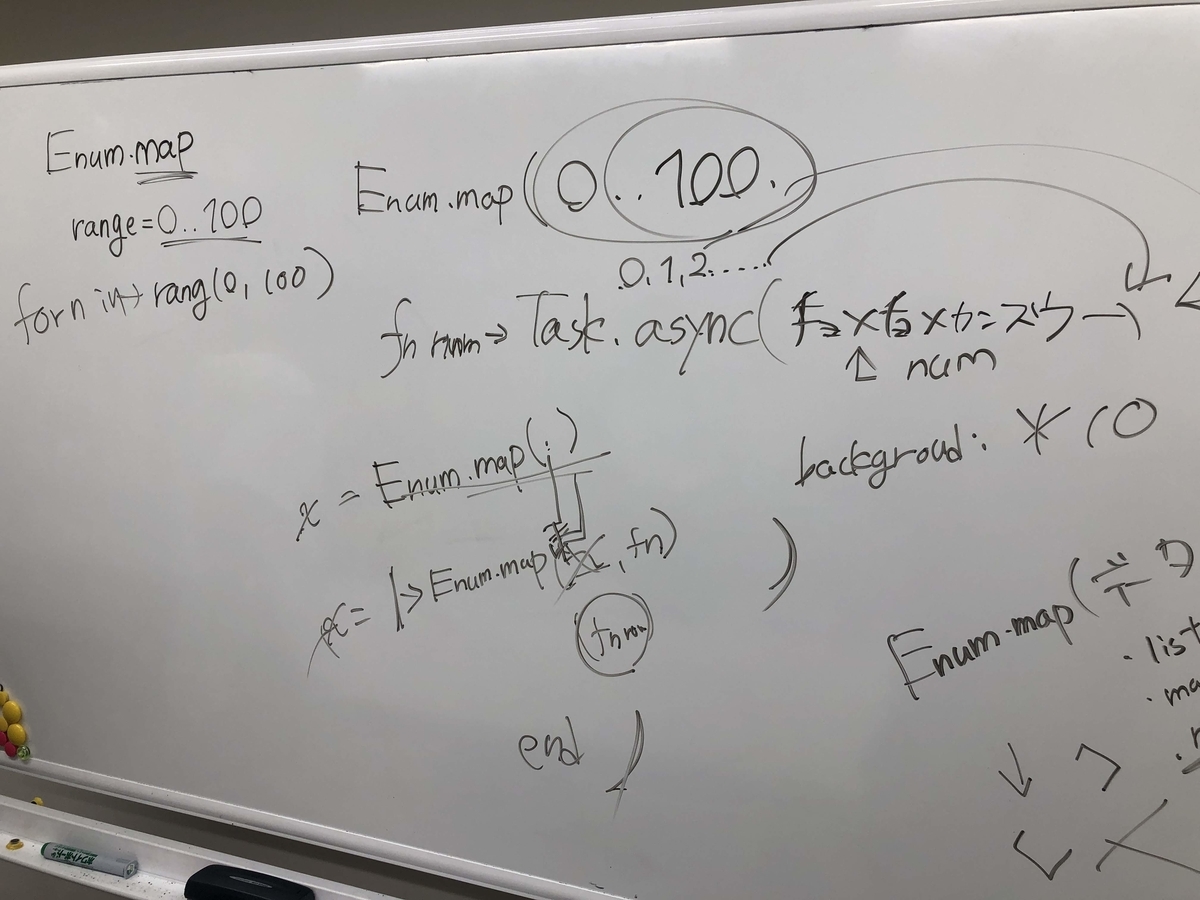 Enum.map
range=0..100
for n in rang(0, 100)
Enum.map(0..100.
0,1,2.....
fn num→ Task.async(
↑ num
backgroud: * 10
x = Enum.map(:)
x= |> Enum.map(x, fn)
)
fn
end )
Enum.map(
・list
・ma